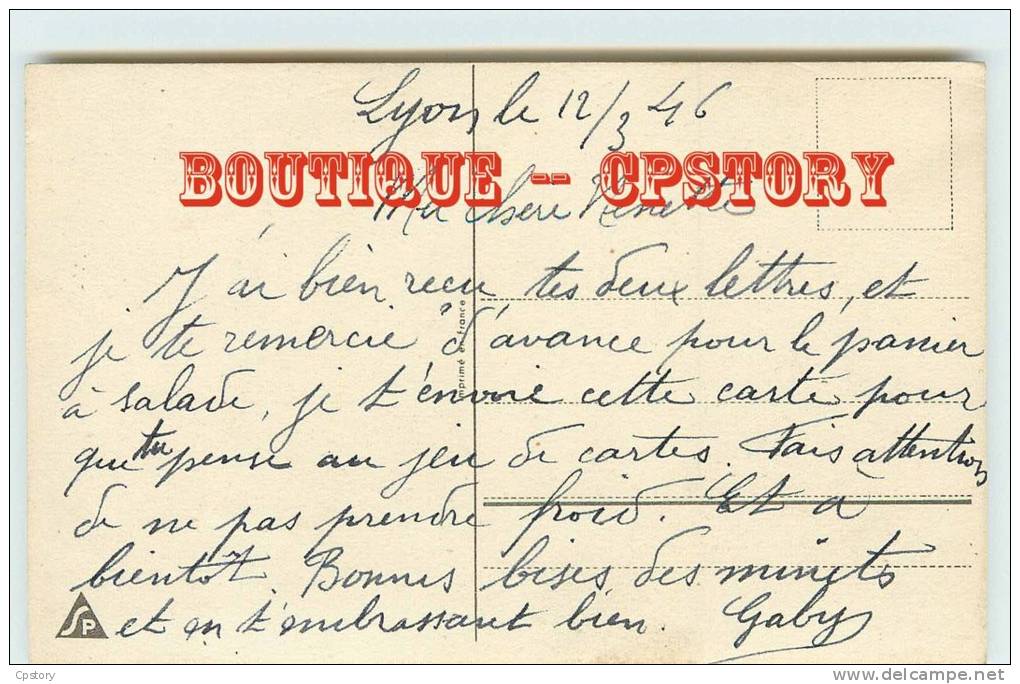 Lyon, le 12/3 46
BOUTIQUE -- CPSTORY
Ma chère Ninette
J'ai bien reçu tes deux lettres, et
je te remercie d'avance pour le panier
à salade, je t'envoie cette carte pour
que tu pense au jeu de cartes. Fais attention
de ne pas prendre froid. Et a
bientôt. Bonnes bises des minets
et en t'embrassant bien. Gaby
imprimé en france
SP
Cpstory
www.delcampe.net